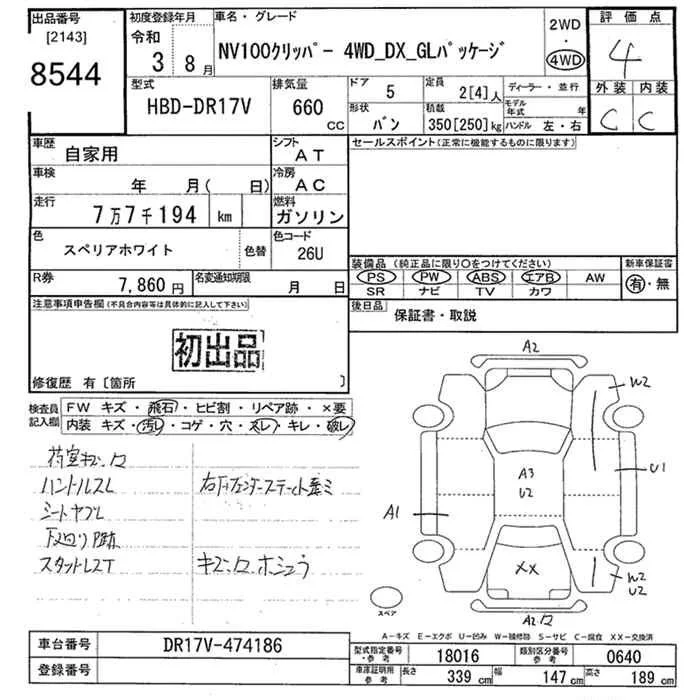 出品番号 [2143] 8544
初度登録年月 令和 3 8月
車名・グレード NV100クリッパー 4WD_DX_GLパッケージ
2WD ・ 4WD
評価点 4
外装 内装 C C
型式 HBD-DR17V
排気量 660 CC
ドア 5
定員 2[4]人
形状 バン
積載 350[250]kg
ディーラー・並行
モデル年式 年
ハンドル 左・右
車歴 自家用
シフト AT
車検 年 月( 日)
冷房 AC
走行 7万7千194 km
燃料 ガソリン
色 スペリアホワイト 色替
色コード 26U
R券 7,860円
名変通知期限 月 日
セールスポイント(正常に機能するものに限ります)
装備品(純正品に限り○をつけてください) 新車保証書
PS PW ABS エアB AW 有・無
SR ナビ TV カワ
後日品 保証書・取説
注意事項申告欄(不具合内容等は具体的に記入して下さい)
初出品
修復歴 有〔箇所 〕
検査員記入欄
FW キズ・飛石・ヒビ割・リペア跡・×要
内装 キズ・汚レ・コゲ・穴・スレ・キレ・破レ
荷室キズ凹
ハンドルスレ
シートヤブレ
スタットレスT
キズ凹ホシュウ
A2
W2
A3
U2
U1
A1
XX
W2
U2
A2凹
スペア
A-キズ E-エクボ U-凹み W-補修跡 S-サビ C-腐食 XX-交換済
車台番号 DR17V-474186
登録番号
型式指定番号・参考 18016
類別区分番号・参考 0640
車庫証明用・参考 長さ 339 cm 幅 147 cm 高さ 189 cm